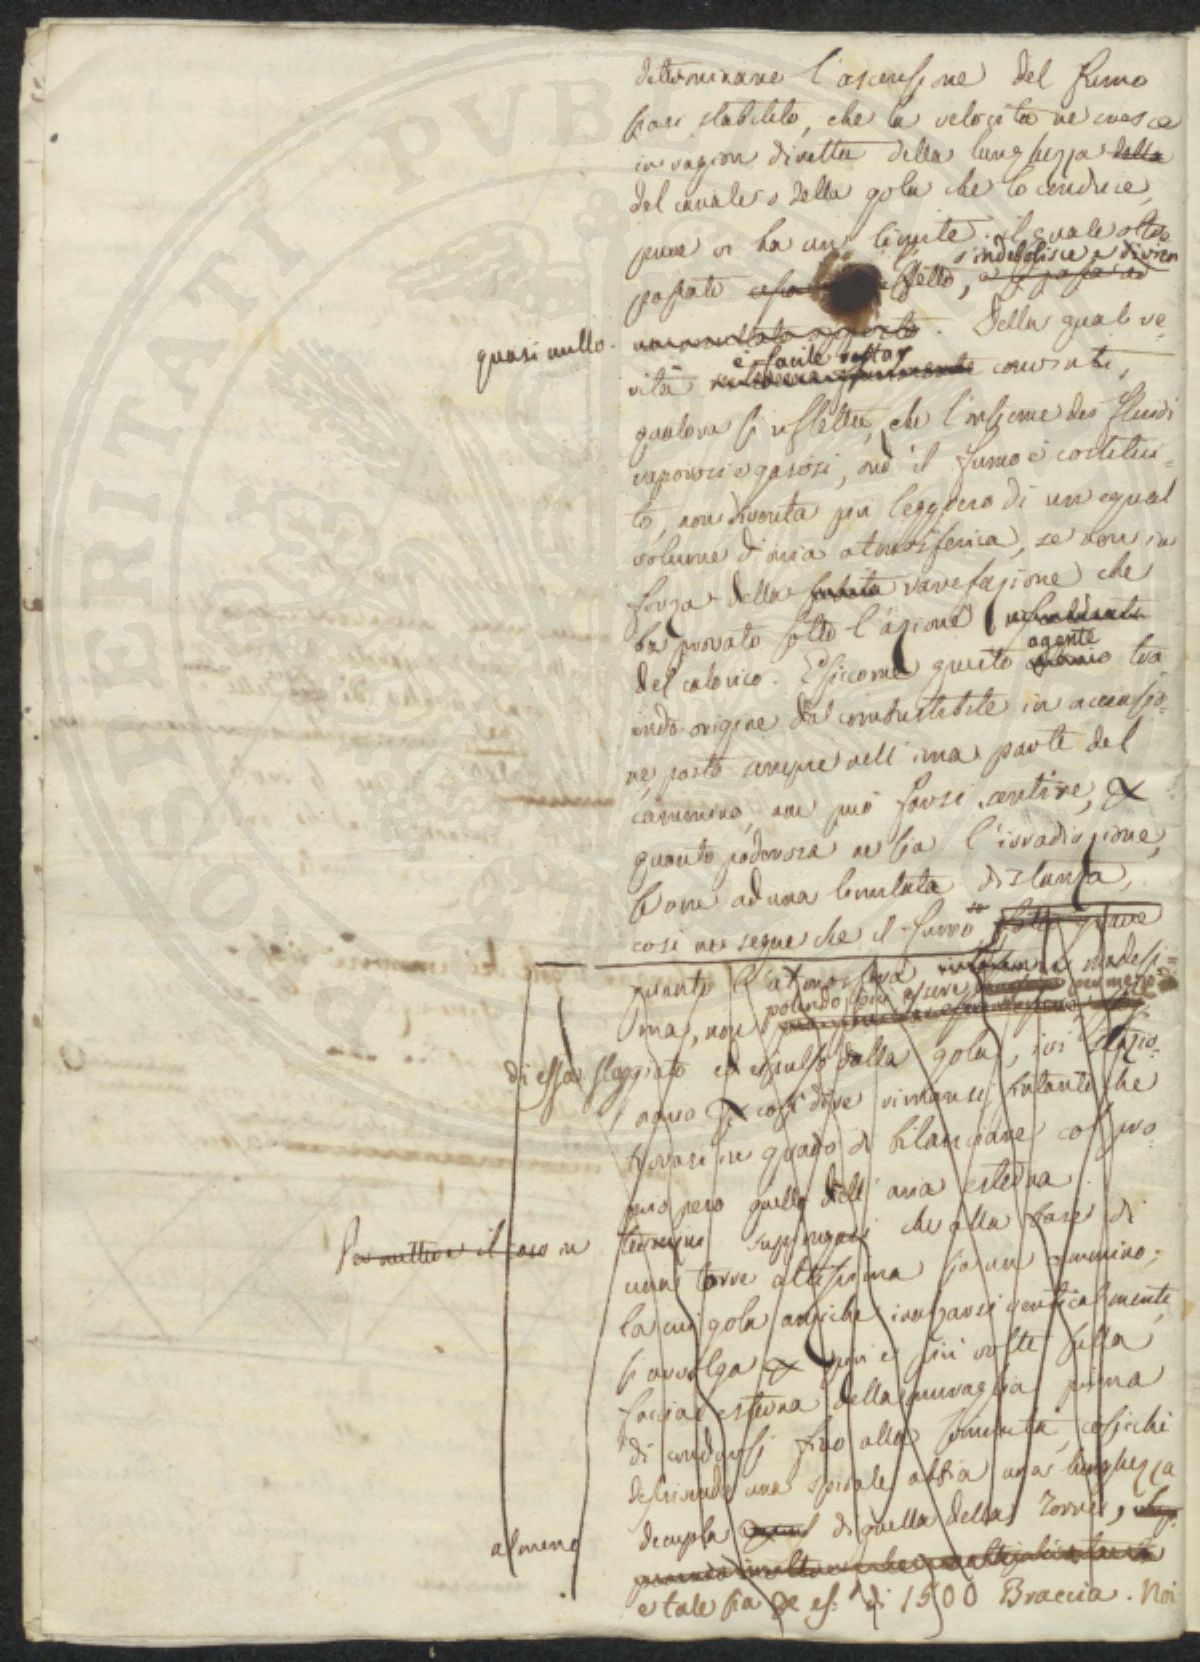 determinare l'ascensione del fumo
siasi stabilito, che la velocità ne cresca
in ragion diretta della lunghezza della
del canale o della gola che lo conduce,
pure vi ha un limite, il quale oltre
s'indebolisce e divien
passato effetto,
quasi nullo. Della qual ve-
è facile restar
rità convinti,
qualora si rifletta, che l'insieme dei fluidi
vaporosi e gasosi, ond'il fumo è costitui-
to, non diventa più leggiero di un egual
volume d'aria atmosferica, se non in
forza della subita rarefazione che
ha provato sotto l'azione
agente
del calorico. E siccome questo tra
endo origine dal combustibile in accensio-
ne, posto sempre nell'ima parte del
cammino, non può farsi sentire, per
quanto poderosa ne sia l'irradiazione,
fuori ad una limitata distanza,
così ne segue che il fumo se
quanto l'atmosfera medesi-
ma, non potendo più essere per mezzo
di essa sloggiato ed espulso dalla gola, ivi stazio-
nario per così dire rimansi, intanto che
trovasi in grado di bilanciare col pro-
prio peso quello dell'aria esterna.
Per mettere il caso in termini suppongasi che alla base di
una torre altissima sia un cammino,
la cui gola anziché innalzarsi verticalmente,
si avvolga per più e più volte sulla
faccia esterna della muraglia prima
di condursi fino alla sommità, cosicchè
descrivendo una spirale abbia una lunghezza
almeno decupla di quella della Torre,
e tale sia per es: di 1500 Braccia. Noi